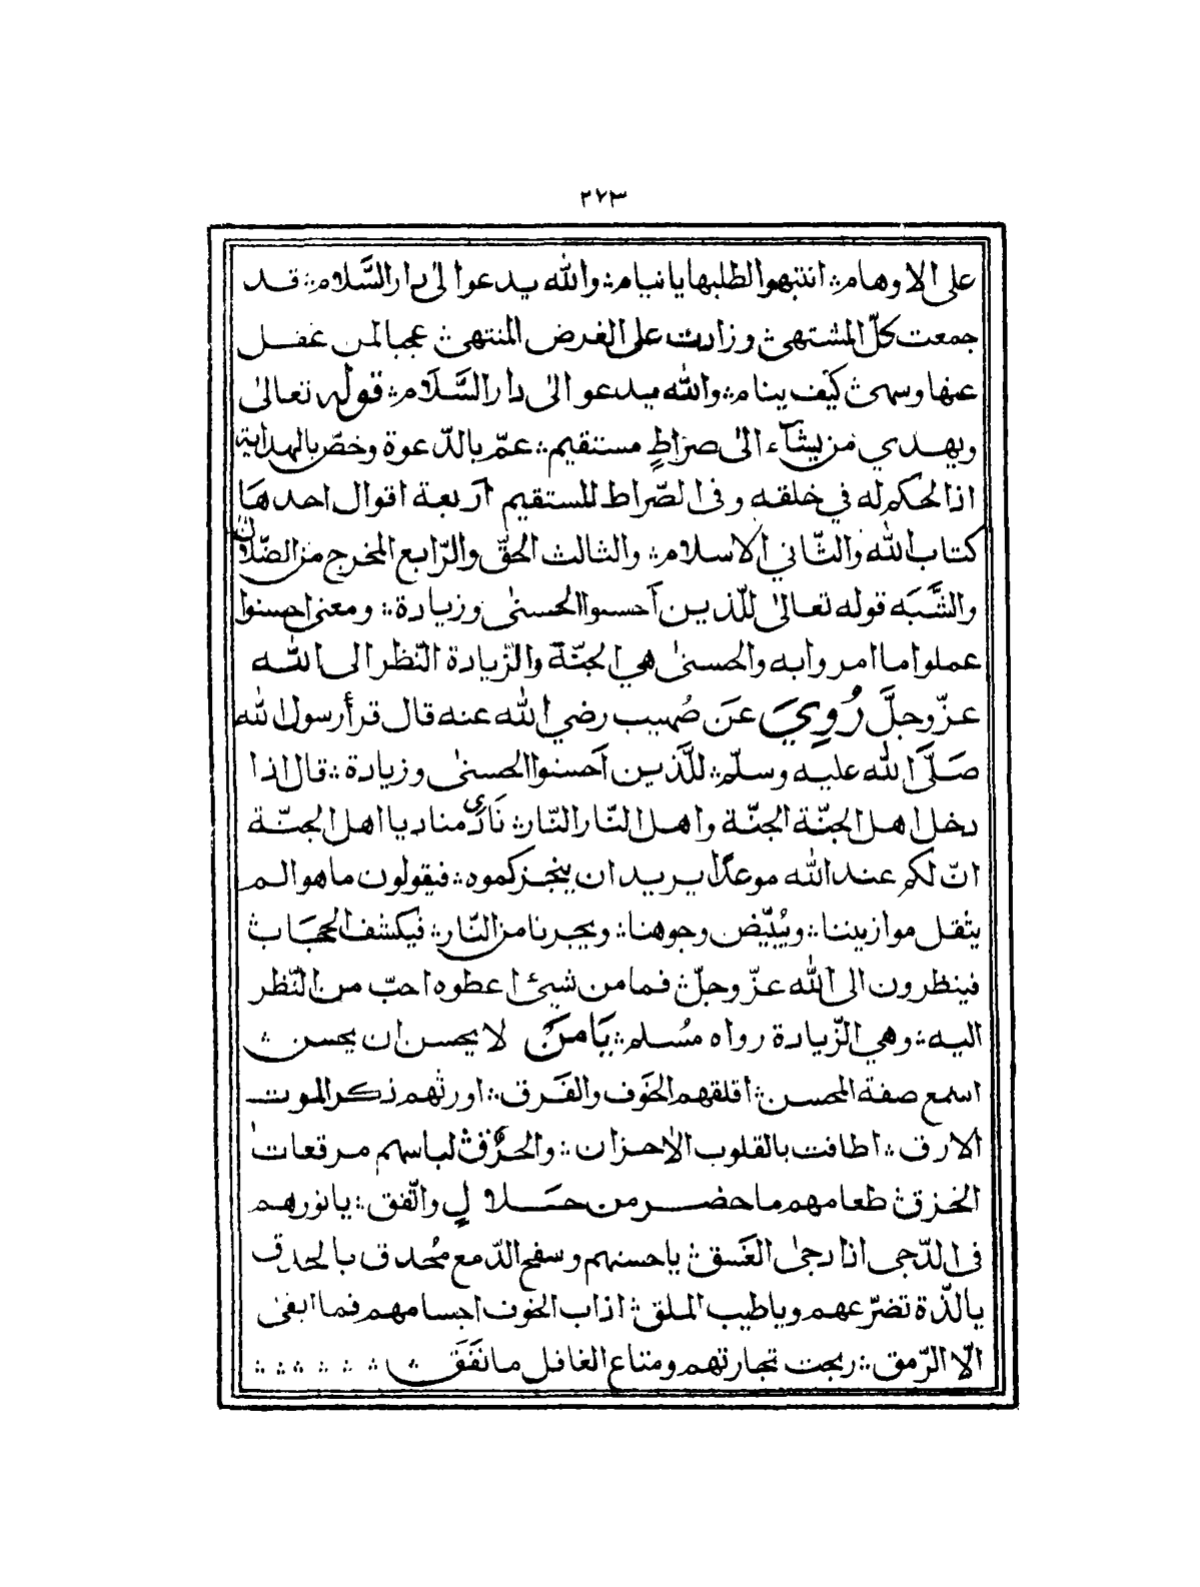 ٢٧٣
على الاوهام ؞ انتبهوا لطلبها يا نيام ؞ والله يدعوا الى دار السَّلام ؞ قد
جمعت كلّ المشتهى ؞ وزادت على الغرض المنتهى ؞ عجبا لمن غفل
عنها وسهى ؞ كيف ينام ؞ والله يدعوا الى دار السَّلَام ؞ قوله تعالى
ويهدي من يشآء الى صراطٍ مستقيم ؞ عمّ بالدّعوة وخصّ بالهداية
اذا لحكم له في خلقه وفى الصّراط المستقيم اربعة اقوال احدهَا
كتاب الله والثّاني الاسلام ؞ والثالث الحقّ والرّابع المخرج من الضّلالات
والشَّبَه قوله تعالى للّذين أحسنوا الحسنى وزيادة ؞ ومعنى احسنوا
عملوا ما امروا به والحسنى هي الجنّة والزّيادة النّظر الى الله
عزّ وجلَّ رُوِيَ عَن صُهيب رضي الله عنه قال قرأ رسول الله
صَلَّى الله عليه وسلّم ؞ للَّذين أحسنوا الحسنى وزيادة ؞ قال اذا
دخل اهل الجنّة الجنّة واهل النّار النّار ؞ نَادى مناد يا اهل الجنّة
انّ لكم عند الله موعدًا يريد ان ينجزكموه ؞ فيقولون ما هو الم
يثقل موازيننا ؞ ويُبيّض وجوهنا ؞ ويجرنا من النّار ؞ فيكشف الحجَاب ؞
فينظرون الى الله عزّ وجلّ ؞ فما من شيئ اعطوه احبّ من النّظر
اليه ؞ وهي الزّيادة رواه مُسلم ؞ يَا مَنْ لا يحسن ان يحسن ؞
اسمع صفة المحسن ؞ اقلقهم الخَوف والفَرق ؞ اورثهم ذكر الموت
الارق ؞ اطافت بالقلوب الاحزان ؞ والحُرَق ؞ لباسهم مرقعات
الخزق ؞ طعامهم ما حضر من حَلالٍ واتّفق ؞ يا نورهم
فى الدّجى اذا دجى الغَسق ؞ يا حسنهم وسفح الدّمع مُحدق بالحدق
يا لذّة تضرّعهم ويا طيب الملق ؞ اذاب الخوف اجسامهم فما ابقى
الّا الرّمق ؞ ربحت تجارتهم ومتاع الغافل ما نَفَقَ ؞ ؞ ؞ ؞ ؞ ؞ ؞ ؞